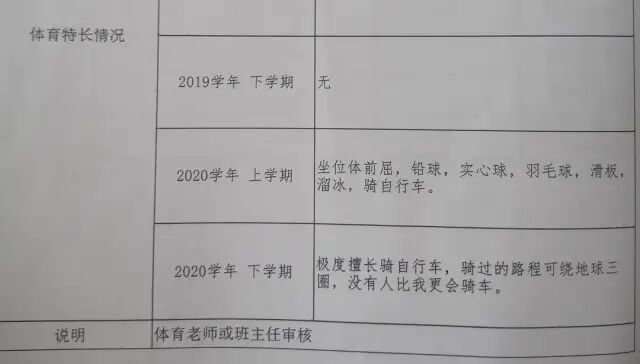 体育特长情况
2019学年 下学期
无
2020学年 上学期
坐位体前屈，铅球，实心球，羽毛球，滑板，
溜冰，骑自行车。
2020学年 下学期
极度擅长骑自行车，骑过的路程可绕地球三
圈，没有人比我更会骑车。
说明
体育老师或班主任审核